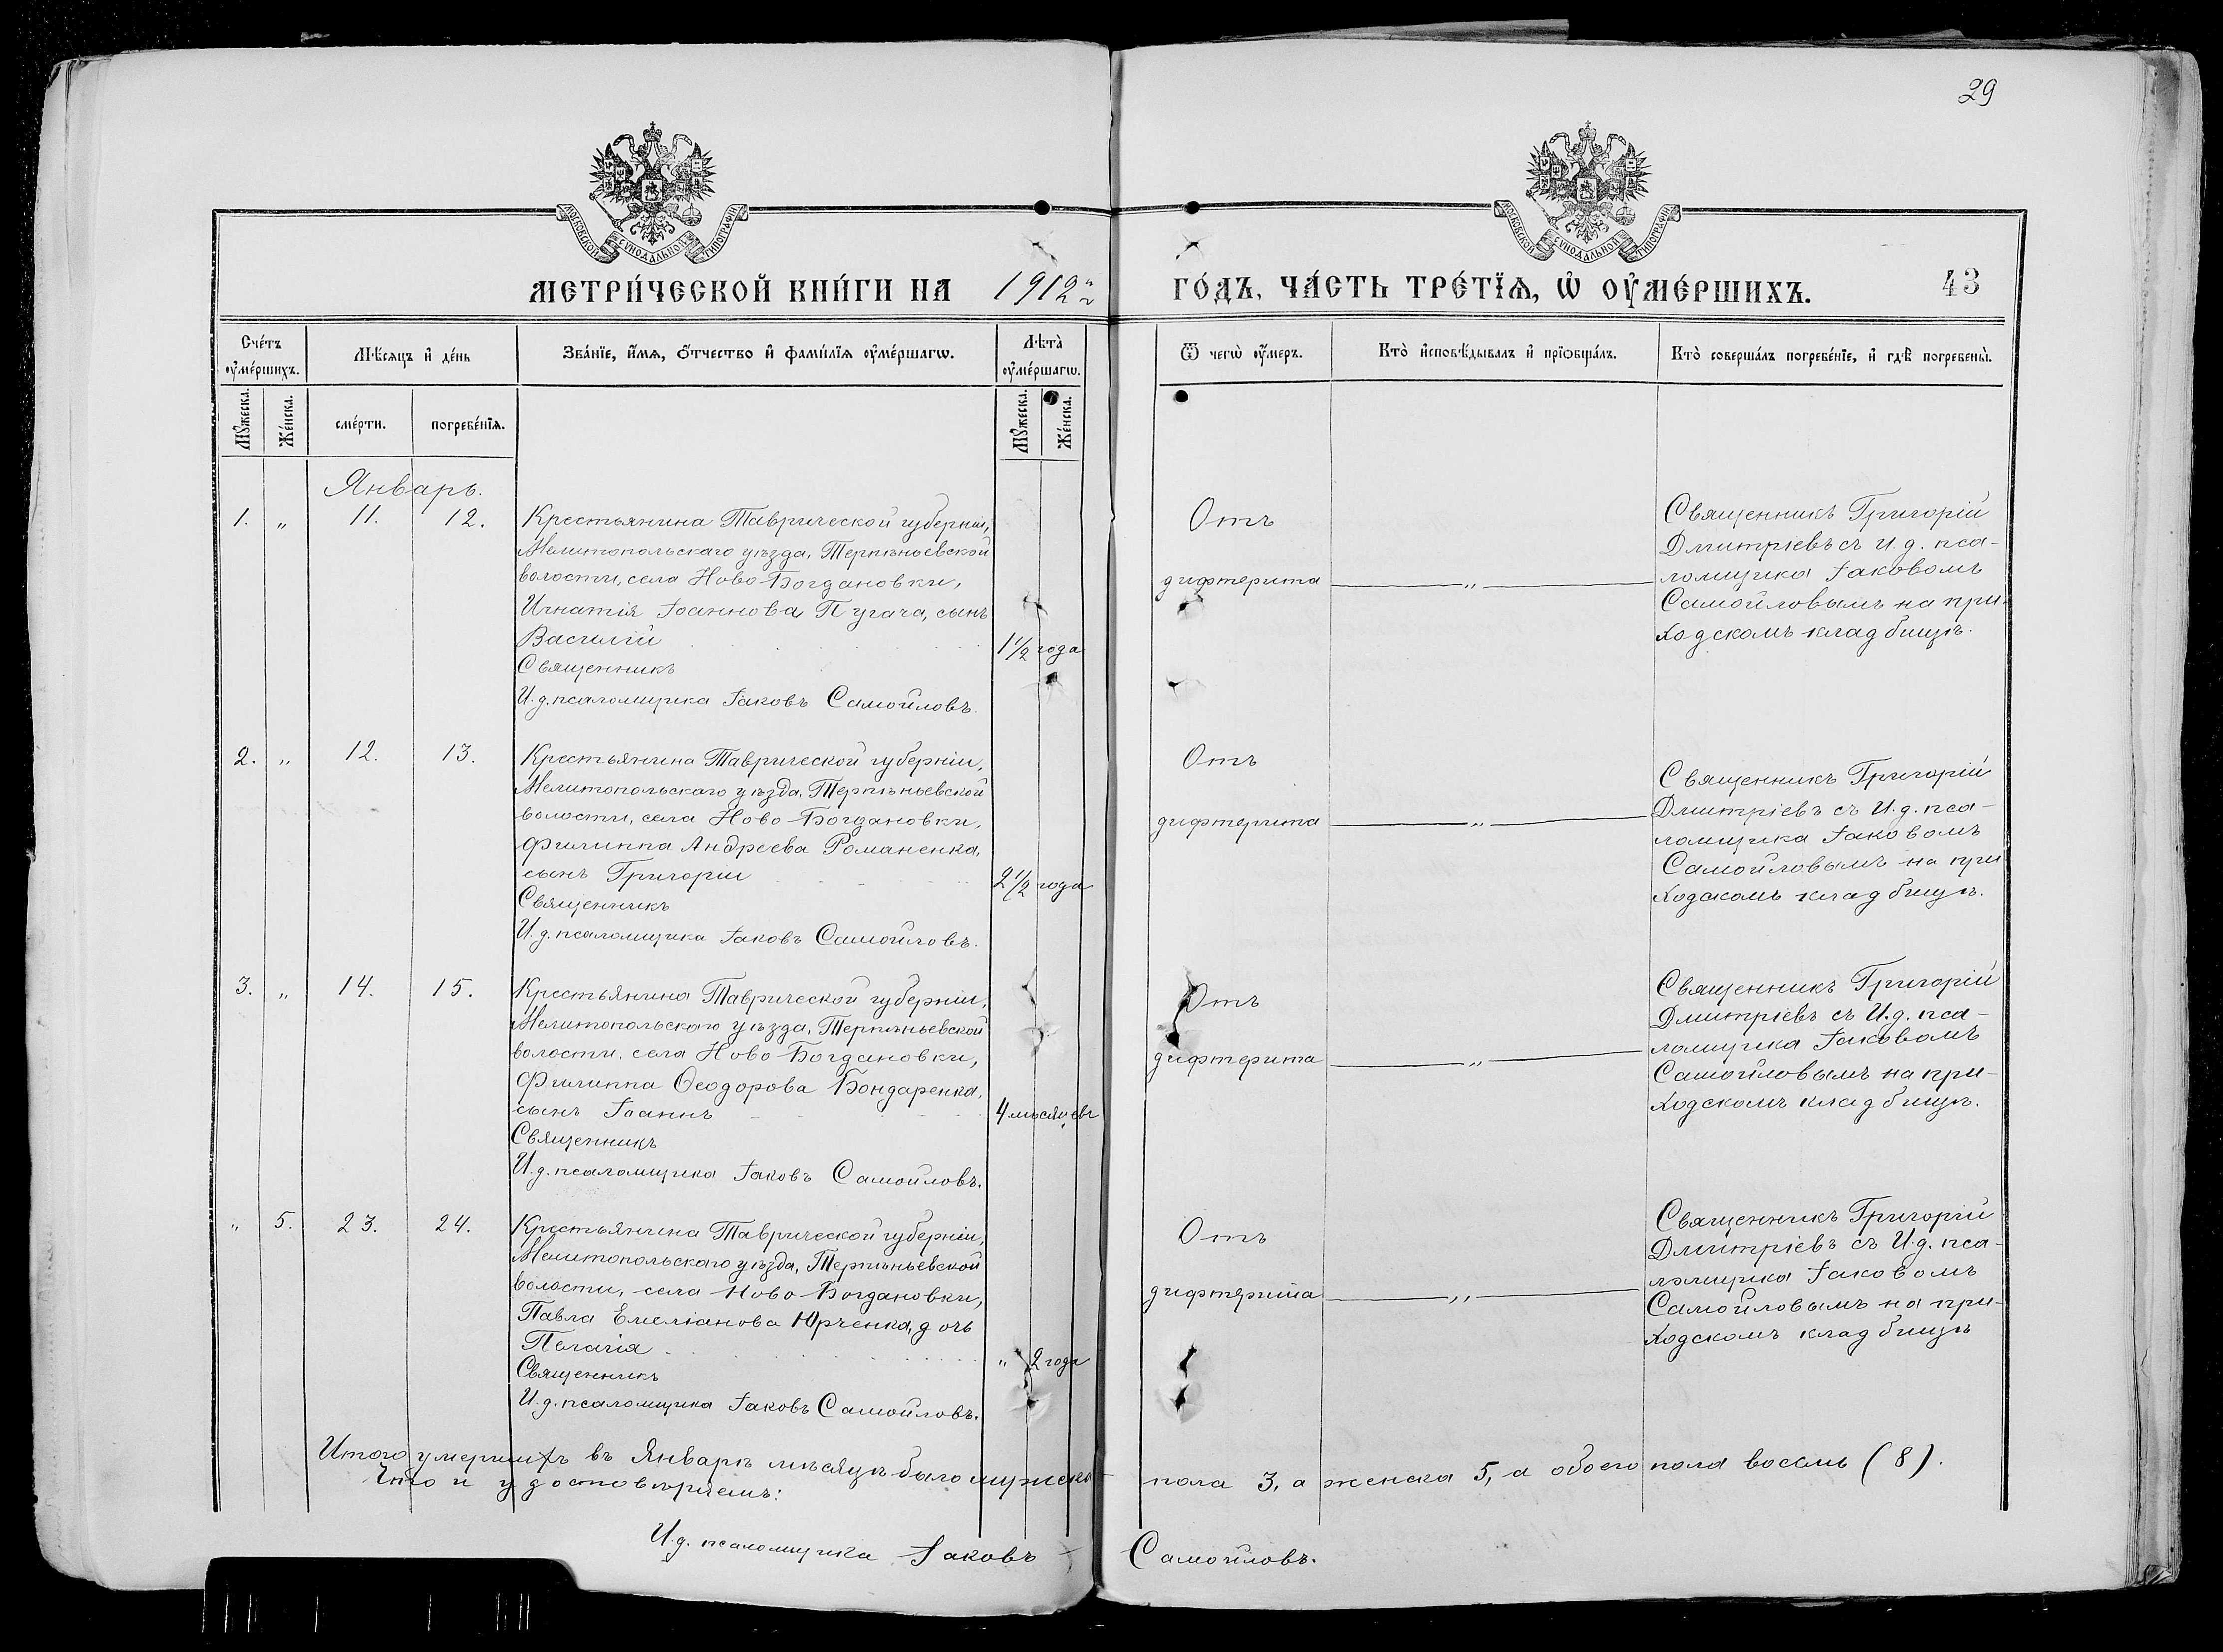 29
МОСКОВСКОЙ СѴНОДАЛЬНОЙ ТИПОГРАФІИ
МОСКОВСКОЙ СѴНОДАЛЬНОЙ ТИПОГРАФІИ
МЕТРИ́ЧЕСКОЙ КНИ́ГИ НА 1912й
ГО́ДЪ, ЧА́СТЬ ТРЕ́ТЇѦ, Ѡ҆ ОУ҆МЕ́РШИХЪ.
43
Сче́тъ оу҆ме́ршихъ.
Мѣ́сяцъ и҆ де́нь
Зва́нїе, и҆́мѧ, ѻ҆́тчество и҆ фами́лїѧ оу҆ме́ршагѡ.
Лѣ́та оу҆ме́ршагѡ.
Ѿ чегѡ̀ оу҆́меръ.
Кто̀ и҆сповѣ́дывалъ и҆ прїѻбща́лъ.
Кто̀ соверша́лъ погребе́нїе, и҆ гдѣ̀ погребены̀.
Мꙋ́жеска.
Же́нска.
сме́рти.
погребе́нїѧ.
Мꙋ́жеска.
Же́нска.
Январь.
1. „ 11. 12. Крестьянина Таврической губерніи,
Мелитопольскаго уѣзда, Терпѣньевской
волости, села Ново-Богдановки,
Игнатія Іоаннова Пугача, сынъ
Василій 1 1/2 года
Священникъ
И.д. псаломщика Іаковъ Самойловъ.
Отъ
дифтерита „
Священникъ Григорій
Дмитріевъ съ И.д. пса-
ломщика Іаковомъ
Самойловымъ на при-
ходскомъ кладбищѣ.
2. „ 12. 13. Крестьянина Таврической губерніи,
Мелитопольскаго уѣзда, Терпѣньевской
волости, села Ново-Богдановки,
Филиппа Андреева Романенка,
сынъ Григорій 2 1/2 года
Священникъ
И.д. псаломщика Іаковъ Самойловъ.
Отъ
дифтерита „
Священникъ Григорій
Дмитріевъ съ И.д. пса-
ломщика Іаковомъ
Самойловымъ на при
ходскомъ кладбищѣ.
3. „ 14. 15. Крестьянина Таврической губерніи,
Мелитопольскаго уѣзда, Терпѣньевской
волости, села Ново-Богдановки,
Филиппа Ѳеодорова Бондаренка,
сынъ Іоаннъ 4 мѣсяцевъ
Священникъ
И.д. псаломщика Іаковъ Самойловъ.
Отъ
дифтерита „
Священникъ Григорій
Дмитріевъ съ И.д. пса-
ломщика Іаковомъ
Самойловымъ на при-
ходскомъ кладбищѣ.
„ 5. 23. 24. Крестьянина Таврической губерніи,
Мелитопольскаго уѣзда, Терпѣньевской
волости, села Ново-Богдановки,
Павла Емеліанова Юрченка, дочь
Пелагія „ 2 года
Священникъ
И.д. псаломщика Іаковъ Самойловъ.
Отъ
дифтерита „
Священникъ Григорій
Дмитріевъ съ И.д. пса-
ломщика Іаковомъ
Самойловымъ на при-
ходскомъ кладбищѣ
Итого умершихъ въ Январѣ мѣсяцѣ было мужска пола 3, а женска 5, а обоего пола восемь (8).
Что и удостовѣряемъ:
И.д. псаломщика Іаковъ Самойловъ.